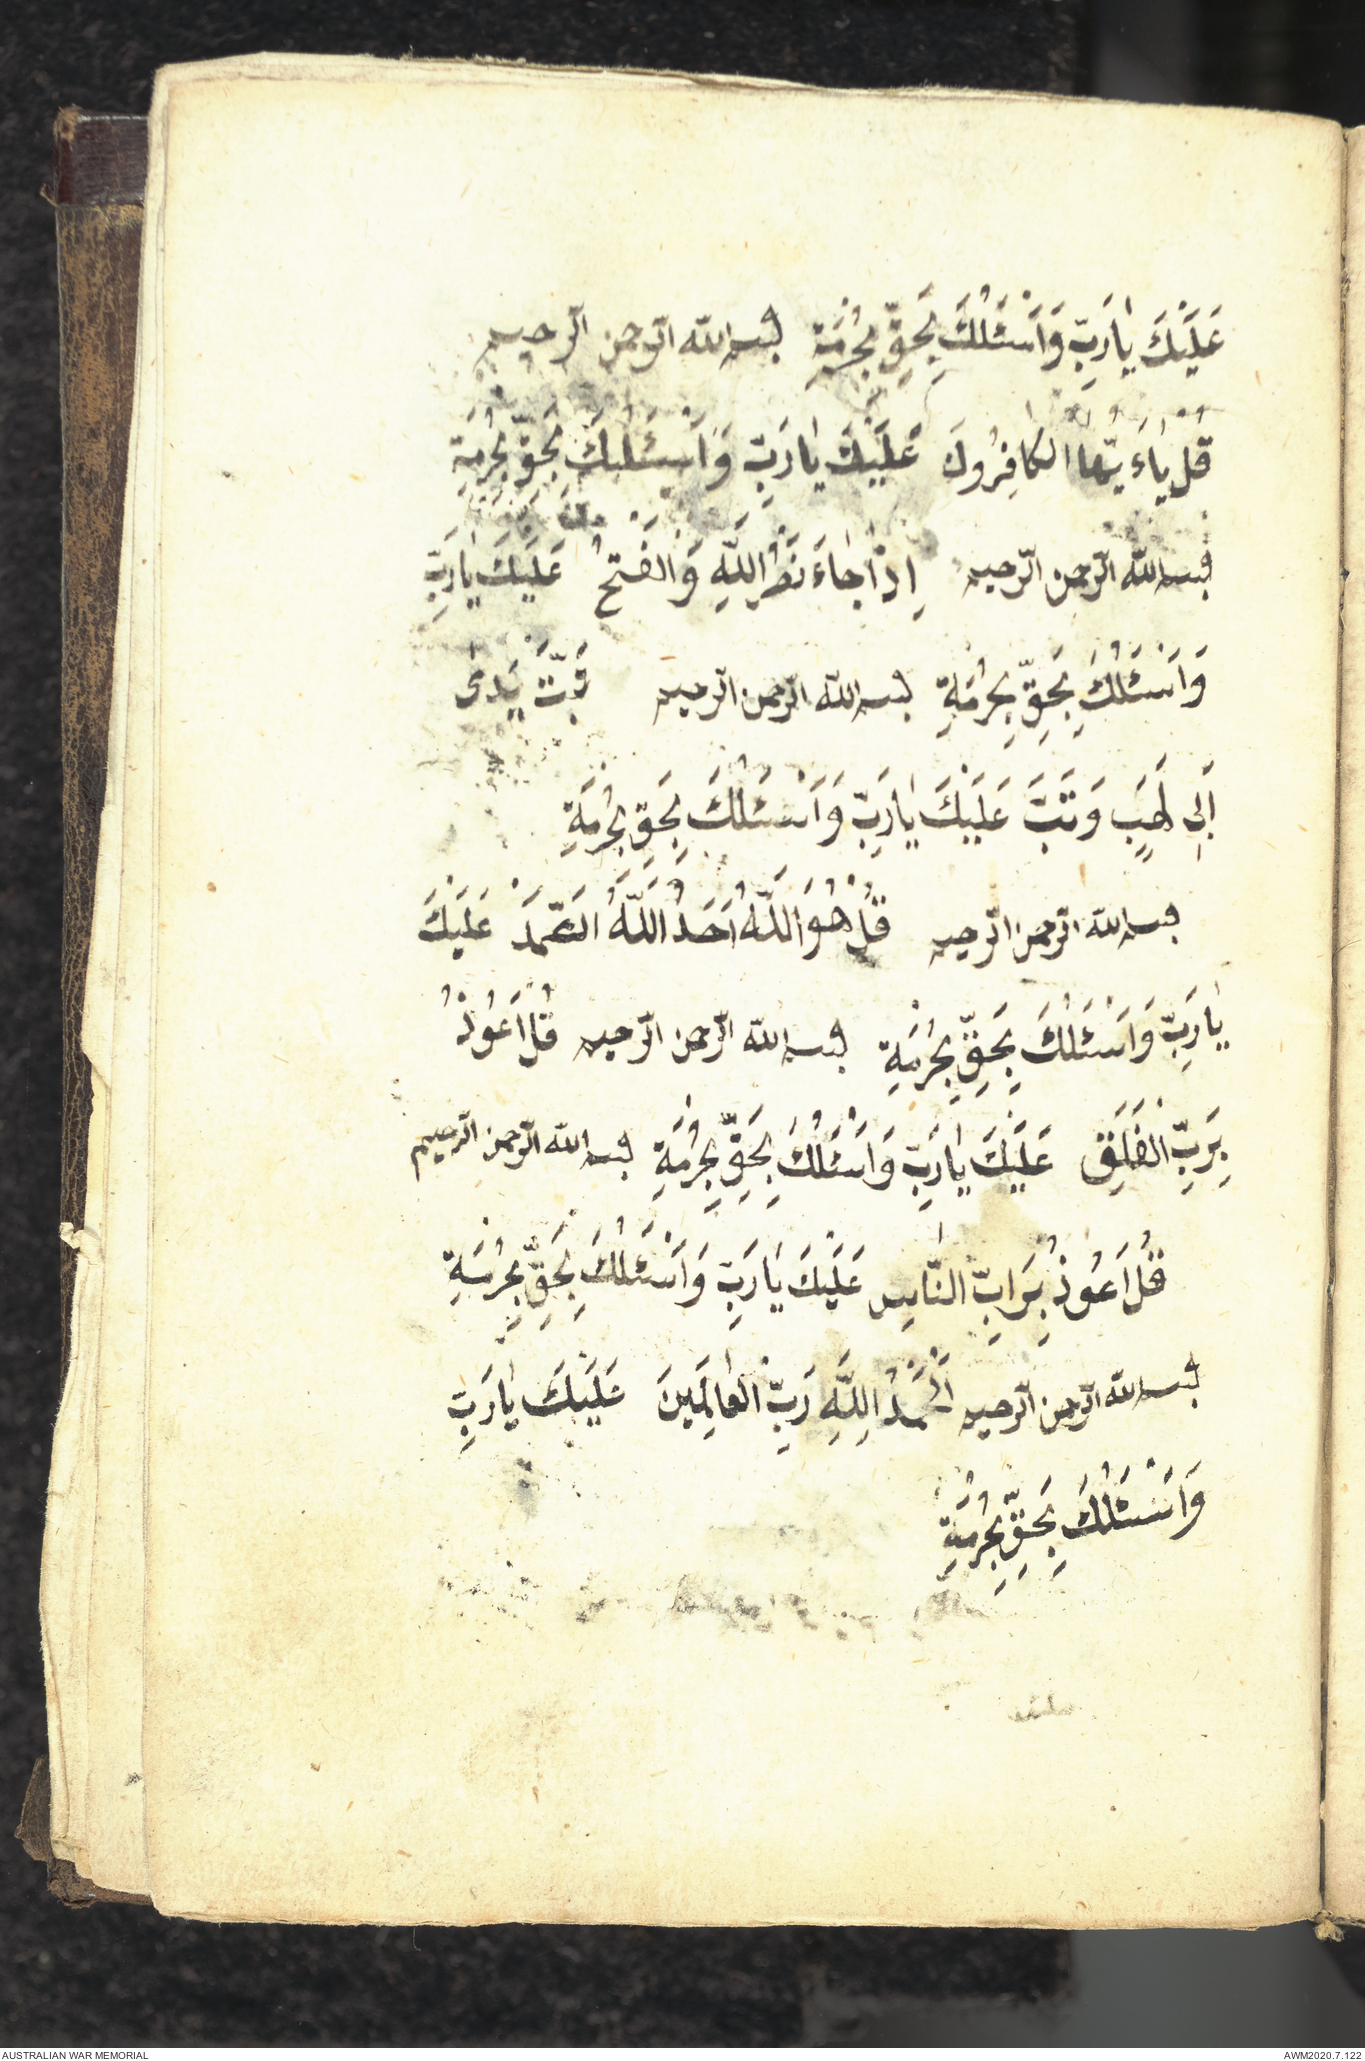 عَلَيْكَ يٰارَبِّ وَاَسْئَلُكَ بِحَقِّ بِحُرْمَةِ بسم الله الرّحمن الرّحيم
قُلْ يٰاءَيُّهَا الْكٰافِرُونَ عَلَيْكَ يٰارَبِّ وَاَسْئَلُكَ بِحَقِّ بِحُرْمَةِ
بسم الله الرّحمن الرّحيم اِذٰا جٰاءَ نَصْرُ اللَّهِ وَالْفَتْحُ عَلَيْكَ يٰارَبِّ
وَاَسْئَلُكَ بِحَقِّ بِحُرْمَةِ بسم الله الرّحمن الرّحيم تَبَّتْ يَدٰى
اَبِى لَهَبٍ وَتَبَّ عَلَيْكَ يٰارَبِّ وَاَسْئَلُكَ بِحَقِّ بِحُرْمَةِ
بسم الله الرّحمن الرّحيم قُلْ هُوَ اللَّهُ اَحَدٌ اللَّهُ الصَّمَدْ عَلَيْكَ
يٰارَبِّ وَاَسْئَلُكَ بِحَقِّ بِحُرْمَةِ بسم الله الرّحمن الرّحيم قُلْ اَعُوذُ
بِرَبِّ الْفَلَقِ عَلَيْكَ يٰارَبِّ وَاَسْئَلُكَ بِحَقِّ بِحُرْمَةِ بسم الله الرّحمن الرّحيم
قُلْ اَعُوذُ بِرَابِّ النّٰاسِ عَلَيْكَ يٰارَبِّ وَاَسْئَلُكَ بِحَقِّ بِحُرْمَةِ
بسم الله الرّحمن الرّحيم اَلْحَمْدُ اللَّهِ رَبِّ الْعٰالَمِينَ عَلَيْكَ يٰارَبِّ
وَاَسْئَلُكَ بِحَقِّ بِحُرْمَةِ
AUSTRALIAN WAR MEMORIAL
AWM2020.7.122